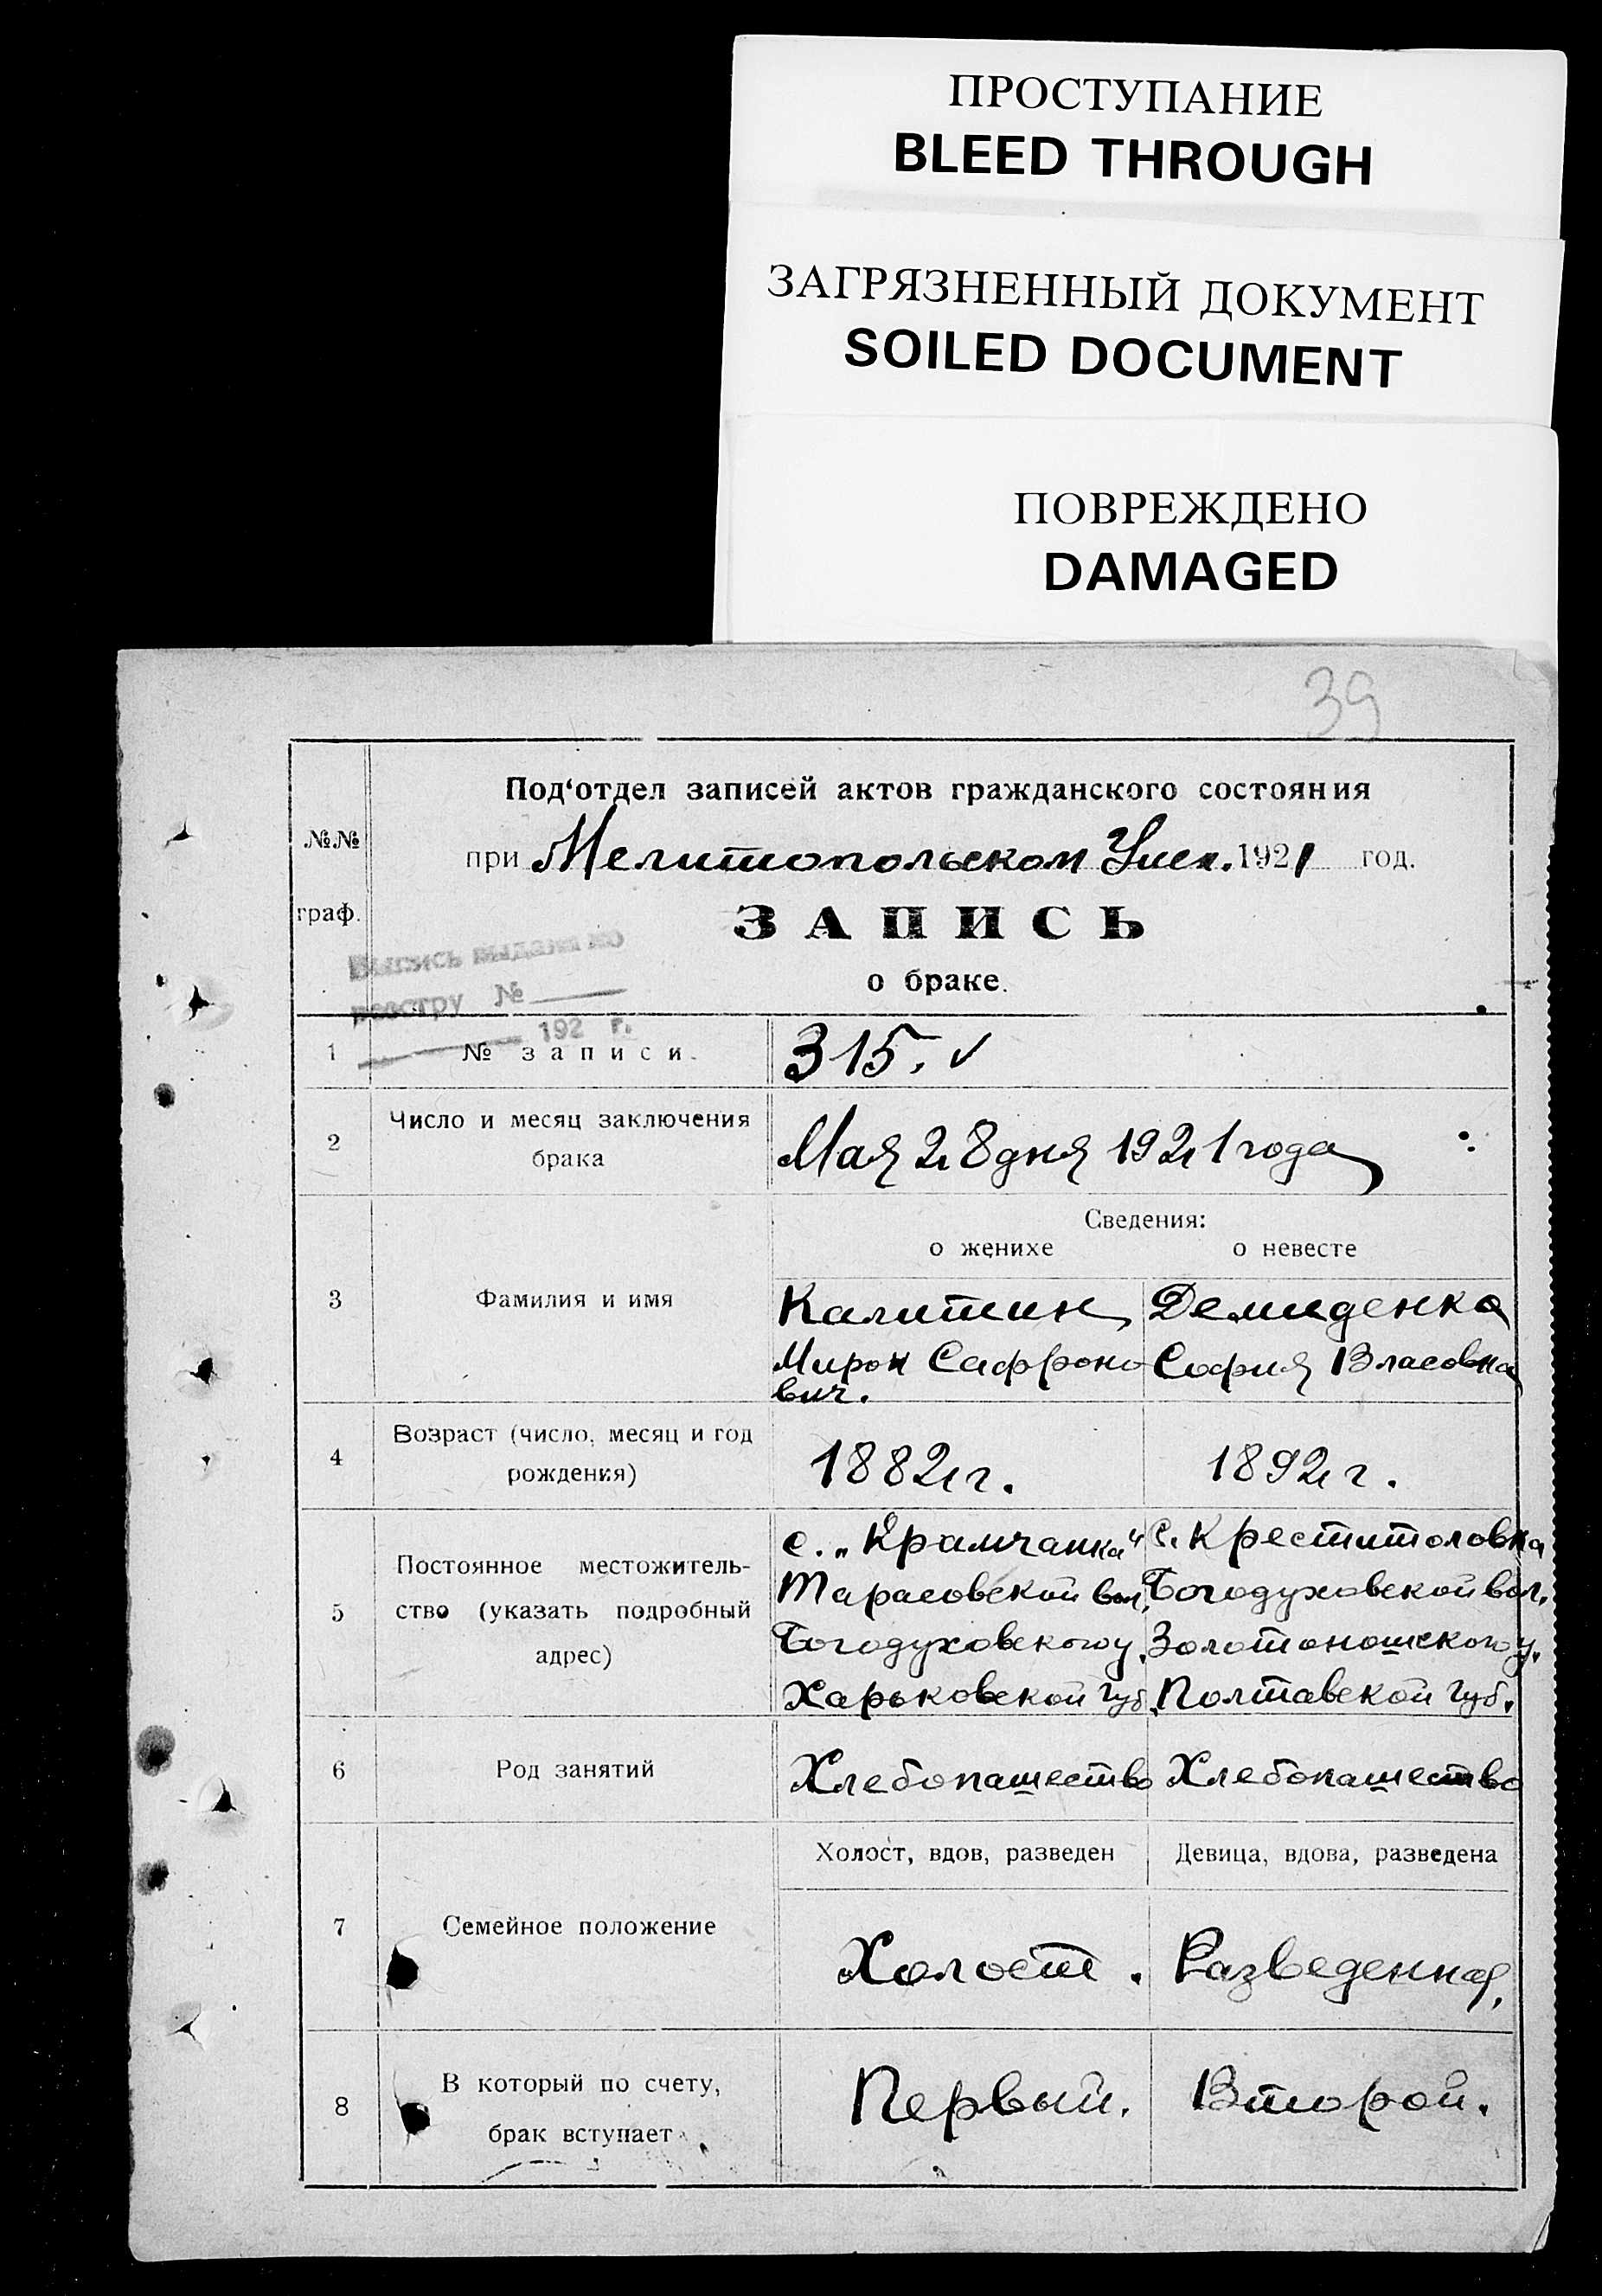 ПРОСТУПАНИЕ
BLEED THROUGH
ЗАГРЯЗНЕННЫЙ ДОКУМЕНТ
SOILED DOCUMENT
ПОВРЕЖДЕНО
DAMAGED
39
Под‘отдел записей актов гражданского состояния
№№ граф.
при Мелитопольском Уисп. 1921 год.
ЗАПИСЬ
о браке.
Выпись выдана по
реестру №
192 г.
1 № записи. 315. ✓
2 Число и месяц заключения
брака
Мая 28 дня 1921 года
Сведения:
о женихе о невесте
3 Фамилия и имя
Калитин Демиденка
Мирон Сафроно София Власовна
вич.
4 Возраст (число, месяц и год
рождения)
1882 г. 1892 г.
5 Постоянное местожитель-
ство (указать подробный
адрес)
с. „Крамчанка“ с. Крестителовка
Тарасовской вол. Богодуховской вол.
Богодуховского у. Золотоношского у.
Харьковской губ. Полтавской губ.
6 Род занятий Хлебопашество Хлебопашество
Холост, вдов, разведен Девица, вдова, разведена
7 Семейное положение
Холост. Разведенная.
8 В который по счету,
брак вступает
Первый. Второй.